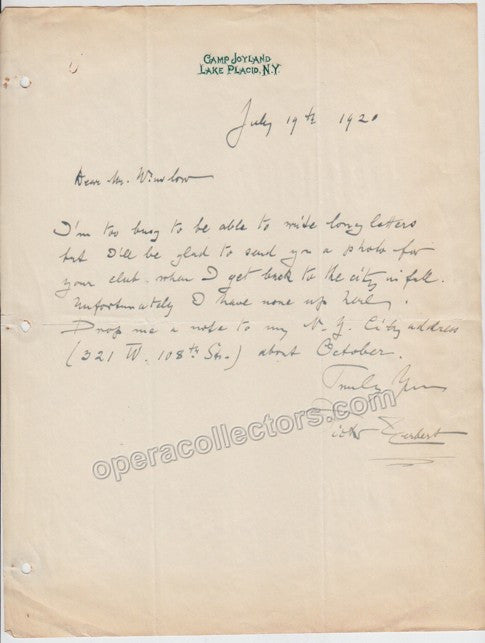 CAMP JOYLAND
LAKE PLACID, N.Y.
July 19th 1920
Dear Mr. Winslow
I'm too busy to be able to write long letters
but I'll be glad to send you a photo for
your club when I get back to the city in fall.
Unfortunately I have none up here.
Drop me a note to my N. Y. City address
(321 W. 108th Str.) about October.
Truly Yours
Victor Herbert
operacollectors.com